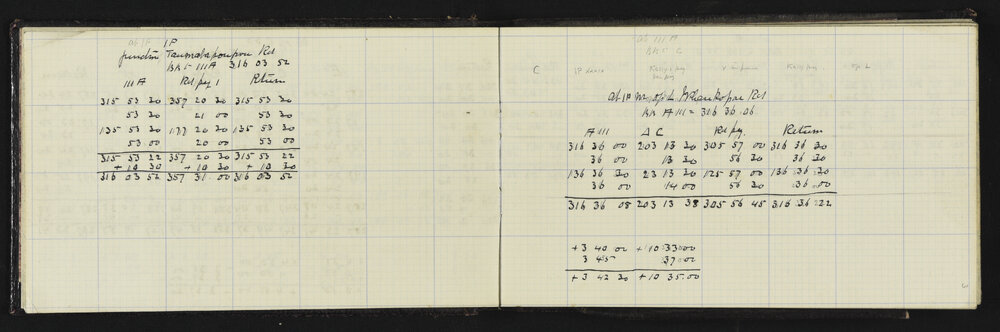 at IP IP
Junctn Taumatapoupou Rd
BK 5 IIIA 316 03 52
IIIA Rd peg 1 Return
315 53 20 357 20 20 315 53 20
53 20 21 00 53 20
135 53 20 177 20 20 135 53 20
53 00 20 00 53 00
315 53 22 357 20 30 315 53 22
+ 10 30 + 10 30 + 10 30
316 03 52 357 31 00 316 03 52
at III A
BK 5 C
C
at IP Whankopae Rd
BK A III = 316 36 06
A III Δ C Rd peg. Return
316 36 00 203 13 20 305 57 00 316 36 20
36 00 13 20 56 20 36 20
136 36 20 23 13 20 125 57 00 136 36 20
36 00 14 00 56 20 36 00
316 36 08 203 13 38 305 56 45 316 36 22
+ 3 40 00 + 10 33 00
3 45 37 00
+ 3 42 30 + 10 35 00